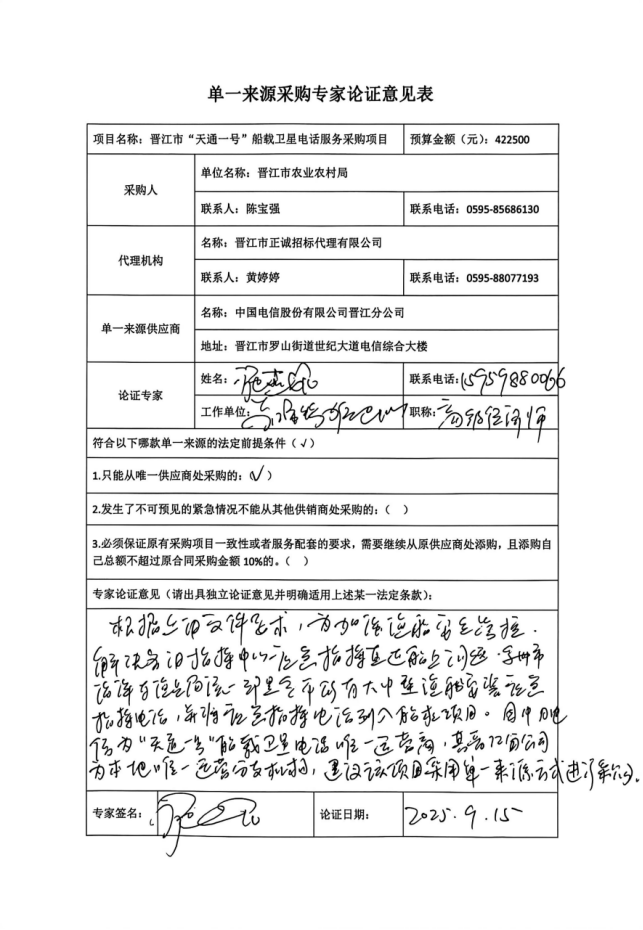 单一来源采购专家论证意见表
项目名称：晋江市“天通一号”船载卫星电话服务采购项目 预算金额（元）：422500
采购人 单位名称：晋江市农业农村局
联系人：陈宝强 联系电话：0595-85686130
代理机构 名称：晋江市正诚招标代理有限公司
联系人：黄婷婷 联系电话：0595-88077193
单一来源供应商 名称：中国电信股份有限公司晋江分公司
地址：晋江市罗山街道世纪大道电信综合大楼
论证专家 姓名： 联系电话：15959880066
工作单位： 职称：高级经济师
符合以下哪款单一来源的法定前提条件（√）
1.只能从唯一供应商处采购的：（√）
2.发生了不可预见的紧急情况不能从其他供销商处采购的：（ ）
3.必须保证原有采购项目一致性或者服务配套的要求，需要继续从原供应商处添购，且添购自
己总额不超过原合同采购金额 10%的。（ ）
专家论证意见（请出具独立论证意见并明确适用上述某一法定条款）：
根据上级文件要求，为加强渔船安全管控，
解决各的指挥中心应急指挥直达船上问题，泉州市
统一部署全市所有大中型渔船安装应急
指挥电话，并将应急指挥电话列入项目。因中国电
信为“天通一号”船载卫星电话唯一运营商，其晋江分公司
为本地唯一运营分支机构，建议该项目采用单一来源方式进行采购。
专家签名： 论证日期：2025.9.15